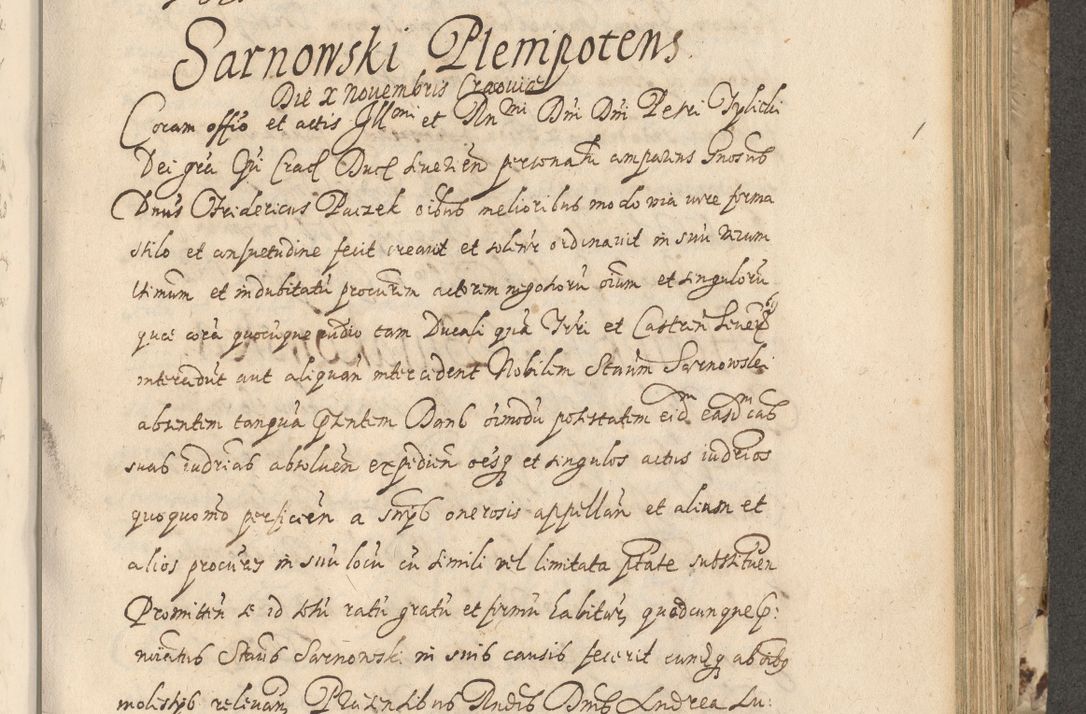 Sarnowski Plenipotens.
Die X Novembris Cracoviae
Coram offo et actis Illmi et Rndmi Dni Dni Petri Tylicki
Dei gra Epi Crac Duc Severien personalr comparens Gnosus
Dnus Fridericus Paczek oibus melioribus modo via iure forma
stilo et consuetudine fecit creavit et solenr ordinavit in suu verum
ltimum et indubitatu procurem actorem negotioru oium et singuloru
quae cora quocuque iudio tam Ducali qua Trri et Castren Sever
intercedut aut aliquan intercedent Nobilem Staum Sarnowski
absentem tanqua pntem Dans oimodu potestatem eidm easdm cas
suas iudrias absoluen expedien oesq et singulos actus iudrios
quoquo mo perficien a snys onerosis appellan et alium et
alios procures in suu locu cu simili vel limitata ptate substituen
Promitten se id totu ratu gratu et firmu habitur, quodcunque p:
noiatus Staus Sarnowski in suis causis fecerit eundq ab oibs
molestys relevan Praesentibus Rndis Dnis Andrea Lu: